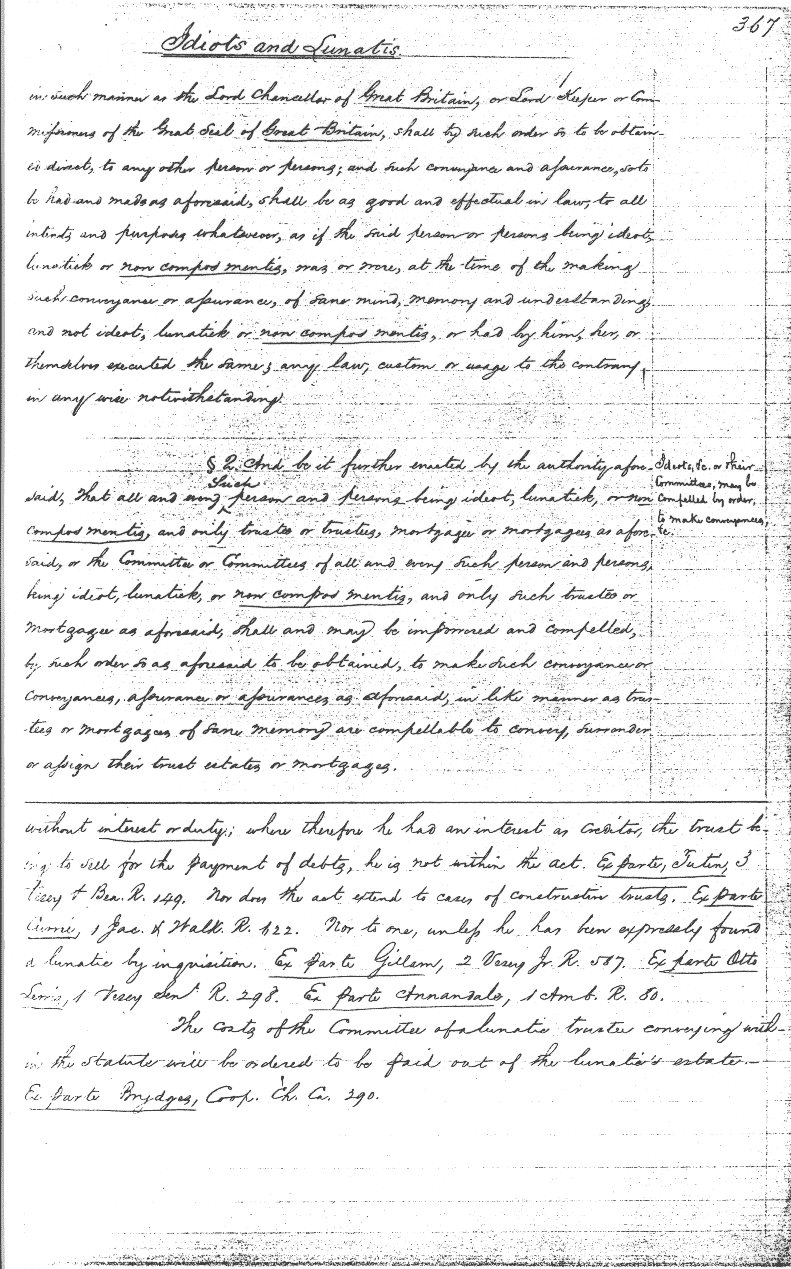 367
Idiots and Lunatis
in such manner as the Lord Chancellor of Great Britain, or Lord Keeper or Com-
missioners of the Great Seal of Great Britain, shall by such order so to be obtain-
ed direct, to any other person or persons; and such conveyance and assurance, so to
be had and made as aforesaid, shall be as good and effectual in law, to all
intents and purposes whatsoever, as if the said person or persons being ideot,
lunatick or non compos mentis, was or were, at the time of the making
such conveyance or assurance, of sane mind, memory and understanding,
and not ideot, lunatick or non compos mentis, or had by him, her, or
themselves executed the same; any law, custom or usage to the contrary
in any wise notwithstanding.
§ 2. And be it further enacted by the authority afore-
said, That all and every such person and persons being ideot, lunatick, or non
compos mentis, and only trustee or trustees, mortgagee or mortgagees as afore-
said, or the Committee or Committees of all and every such person and persons,
being ideot, lunatick, or non compos mentis, and only such trustee or
mortgagee as aforesaid, shall and may be impowered and compelled,
by such order so as aforesaid to be obtained, to make such conveyance or
conveyances, assurance or assurances as aforesaid, in like manner as trus-
tees or mortgagees of sane memory are compellable to convey, surrender
or assign their trust estates or mortgages.
Idiots, &c. or their
Committees, may be
compelled by order,
to make conveyances,
&c.
without interest or duty; where therefore he had an interest as creditor, the trust be-
ing to sell for the payment of debts, he is not within the act. Ex parte, Tutin, 3
Vesey & Bea. R. 149. Nor does the act extend to cases of constructive trusts. Ex parte
Currie, 1 Jac. & Walk. R. 622. Nor to one, unless he has been expressly found
a lunatic by inquisition. Ex parte Gillam, 2 Vesey Jr. R. 587. Ex parte Otto
Lewis, 1 Vesey Senr. R. 298. Ex parte Annandale, 1 Amb. R. 80.
The costs of the Committee of a lunatic trustee conveying with-
in the statute will be ordered to be paid out of the lunatic's estate.
Ex parte Brydges, Coop. Ch. Ca. 290.